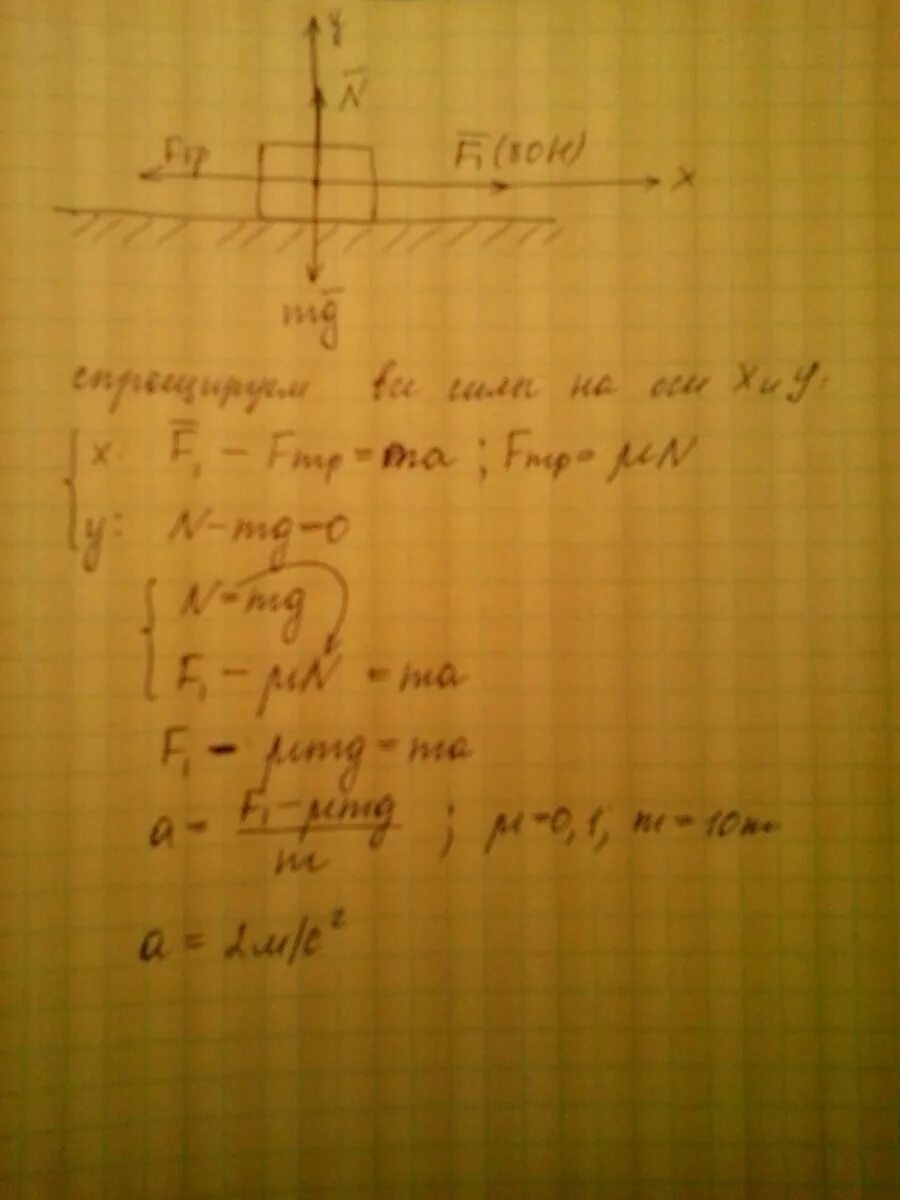 y
N̅
Fтр
F̅₁ (80H)
x
mg̅
спроецируем все силы на оси X и Y:
x: F̅₁ − Fтр = ma ; Fтр = μN
y: N − mg = 0
N = mg
F₁ − μN = ma
F₁ − μmg = ma
a = (F₁ − μmg)/m ; μ = 0,1; m = 10
a = 2м/с²